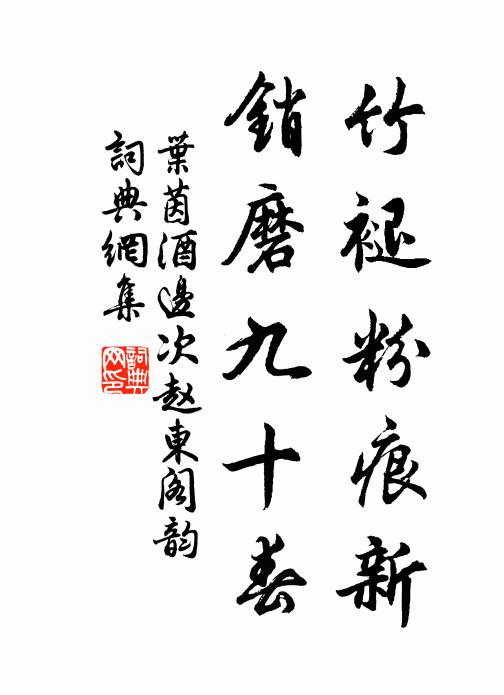 竹褪粉痕新
銷磨九十春
葉茵酒邊次赵東阁韵
詞典網集
詞典
网印